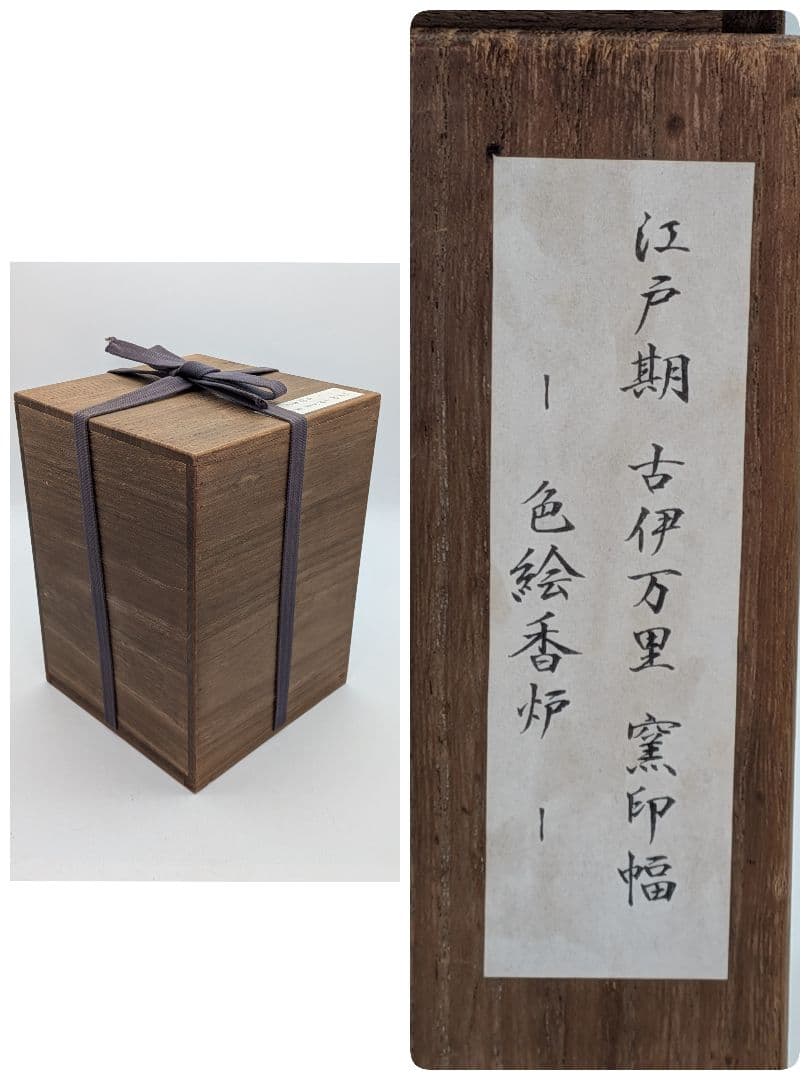 江戸期 古伊万里 窯印幅
ー 色絵香炉 ー